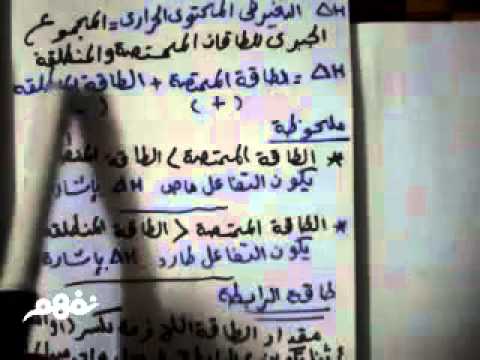 ΔH التغير فى المحتوى الحرارى = المجموع
الجبرى للطاقات الممتصة والمنطلقة
ΔH = الطاقة الممتصة + الطاقة
(+)
ملحوظة
* الطاقة الممتصة > الطاقة
يكون التفاعل ماص ΔH بإشارة
* الطاقة الممتصة < الطاقة المنطلقة
يكون التفاعل طارد ΔH بإشارة
طاقة الرابطة
مقدار الطاقة اللازمة لكسر
نفهم